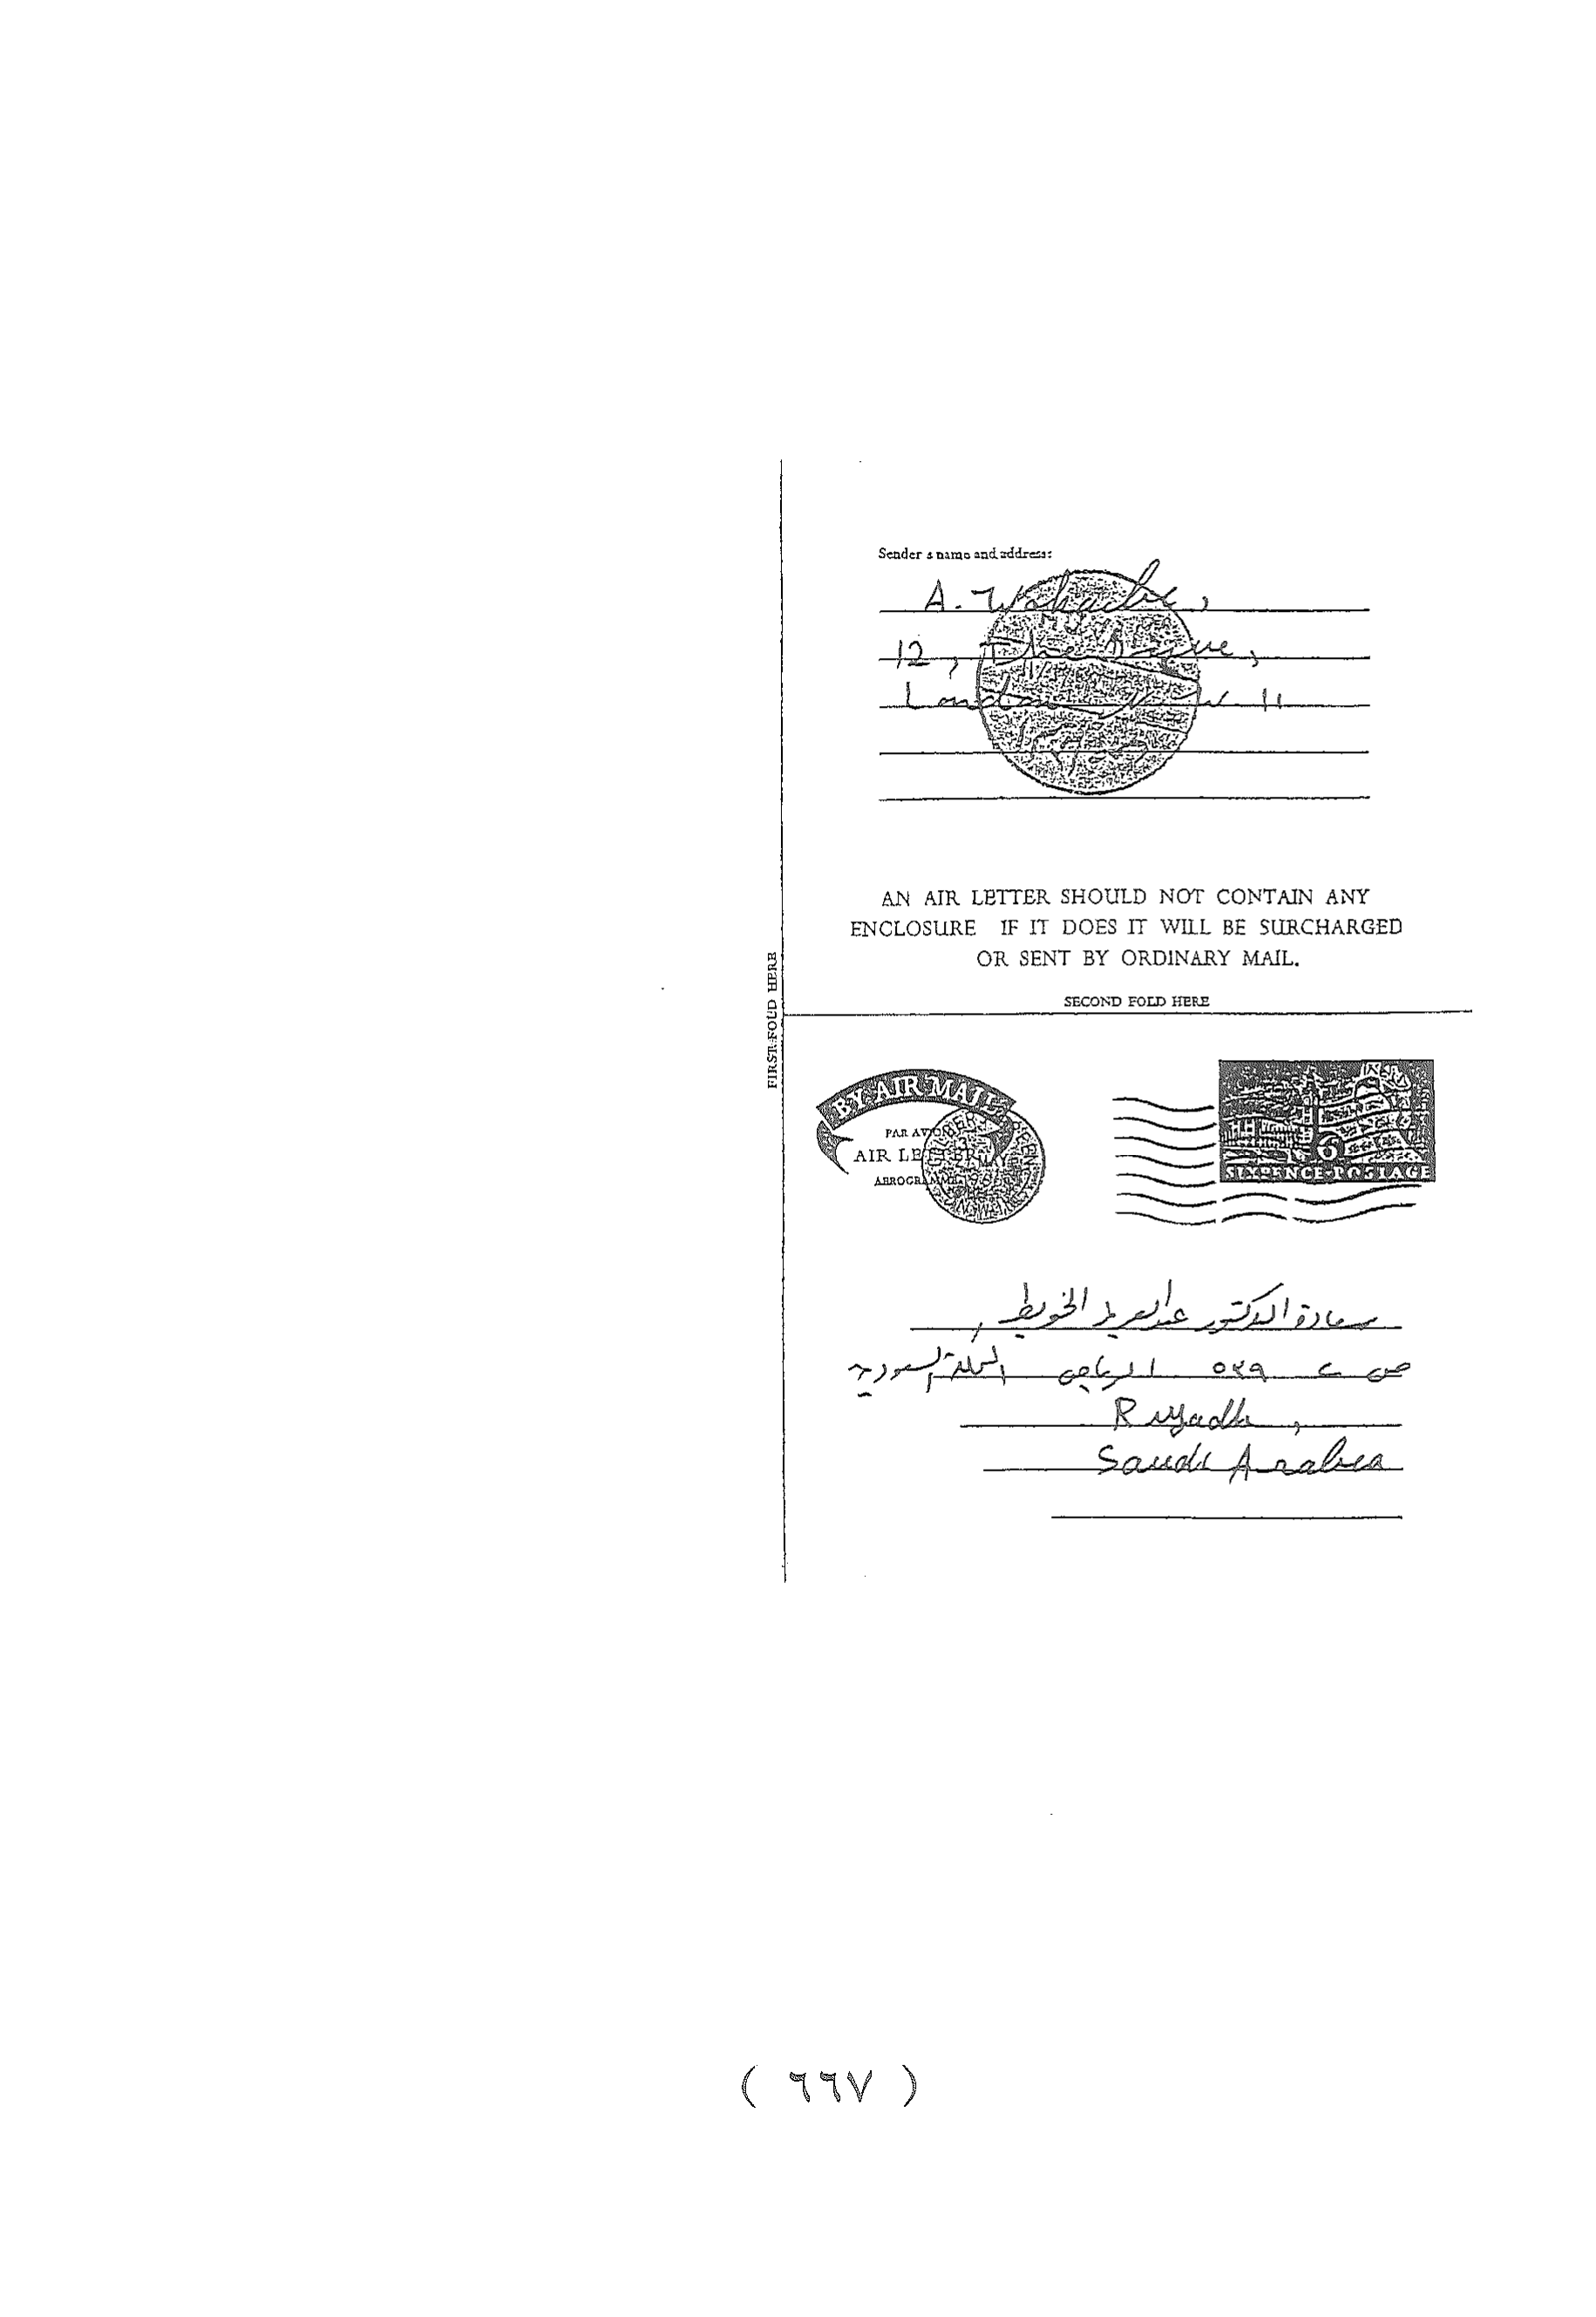 Sender's name and address:
A. Wahabi,
12, The Drive,
London N.W. 11
AN AIR LETTER SHOULD NOT CONTAIN ANY
ENCLOSURE IF IT DOES IT WILL BE SURCHARGED
OR SENT BY ORDINARY MAIL.
FIRST FOLD HERE
SECOND FOLD HERE
BY AIR MAIL
PAR AVION
AIR LETTER
AEROGRAMME
6
SIXPENCE POSTAGE
سعادة الدكتور عبدالعزيز الخويطر,
ص ب ٥٢٩ الرياض المملكة السعودية
Riyadh,
Saudi Arabia
( ٦٦٧ )